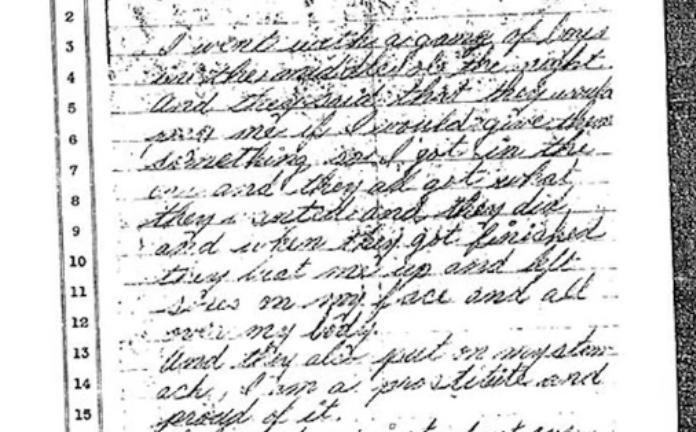 2
3 I went with a gang of boys
4 in the middle of the night.
5 And they said that they would
6 me if I would give them
7 something so I got in the
8 and they all got what
9 they wanted and they did,
10 and when they got finished
11 they beat me up and left
12 on my face and all
13 over my body.
14 And they also put on my stom-
15 ach, I am a prostitute and
proud of it.